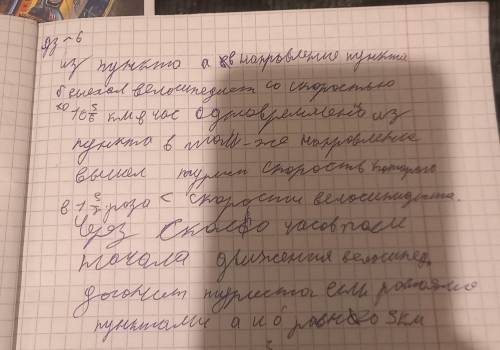 дз №6
из пункта а в направление пункта
б выехал велосипедист со скоростью
10 5/6 км в час одновременно из
пункта в том-же направлении
вышел турист скорость которого
в 1 раза < скорости велосипедиста.
Через сколько часов после
начала движения велосипед.
догонит туриста если растояние
пунктами а и б равно 5км